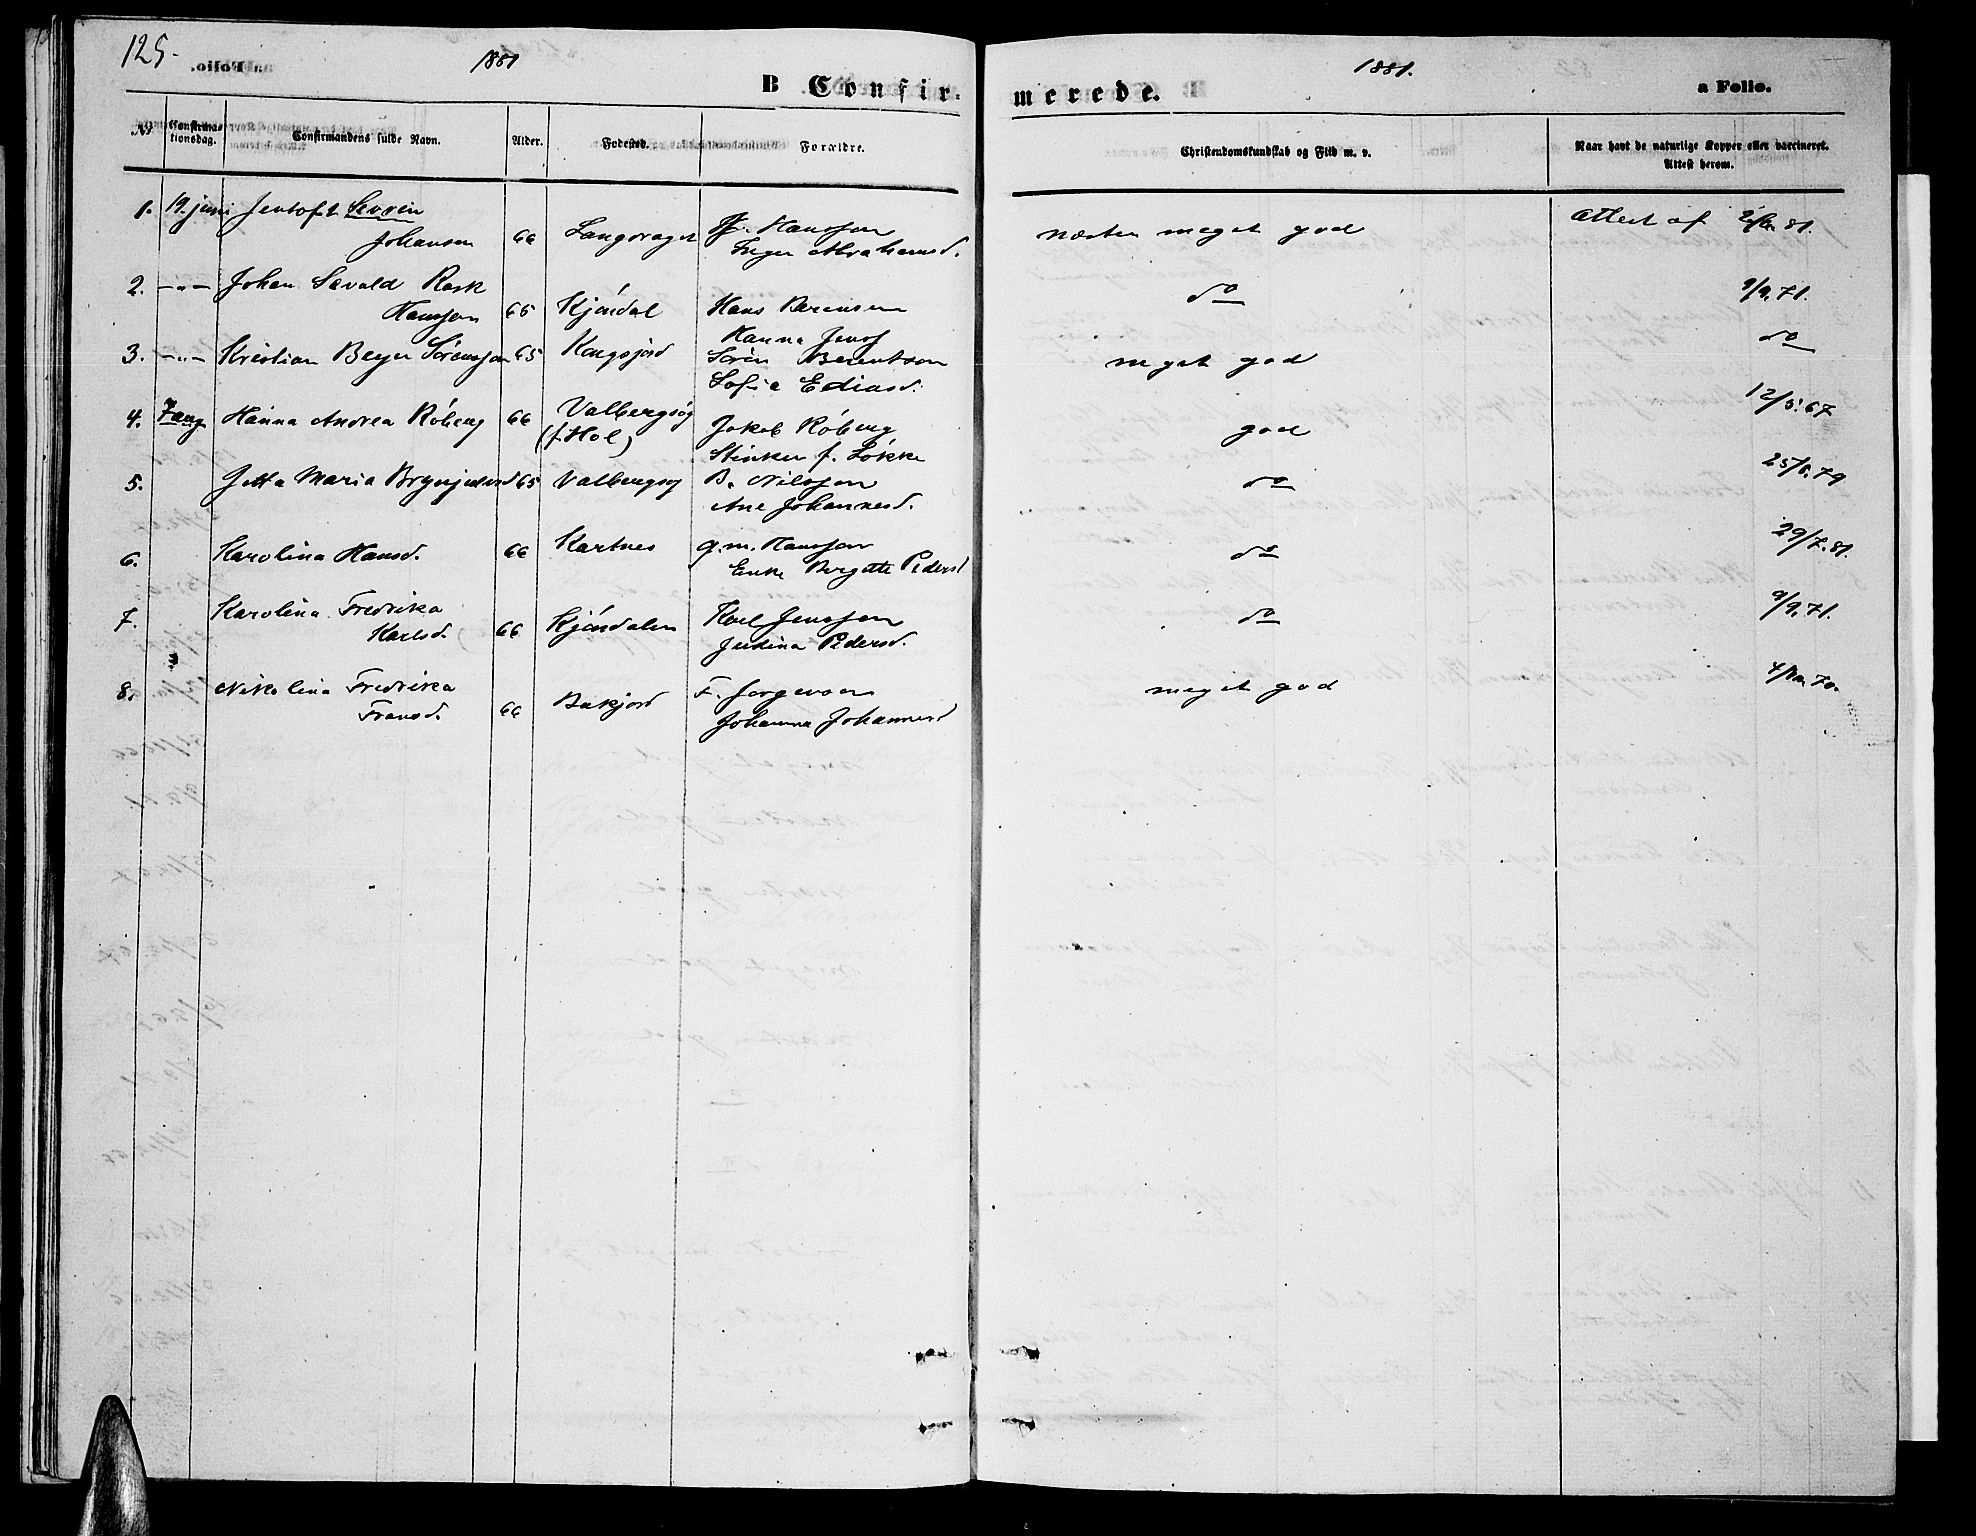 125-
1881
1881.
B Confir-
merede.
a Folio.
No
Confirma-
tionsdag.
Confirmandens fulde Navn.
Alder.
Fødested.
Forældre.
Christendomskundskab og Flid m. v.
Naar havt de naturlige Kopper eller vaccineret.
Attest herom.
1. 19. juni Jentoft Sevrin
Johansen 66 Hansson
Inger Abrahamsd.
næsten meget god
Attest af 81.
2. -"- Johan Sevald Rask
Hansson 65 Kjøndal Hans Berensen
Hanna Jensd
do
9/9.71.
3. -"- Kristian Beyer Sörensson 65 Kongsjord Sörin Berentson
Sofia Ediasd.
meget god
do
4. 7 aug Hanna Andrea Röberg 66 Valbergsög
(f. Hol) Jakob Röberg
f. Lökke
god
12/5.67
5. Jetta Maria 65 Valbergsög B. Nilsson
Ane Johannesd.
do
25/6.79
6. Karolina Hansd. 66 Kartnes g.m. Hansson
Enke Bergitte Pedersd
do
29/7.81.
7. Karolina Fredrika
Karlsd. 66 Kjöndalen Karl Jensson
Judina Pedersd.
do
9/9.71.
8. Nikolina Fredrika
Fransd. 66 Bakjord F. Jorgenson
Johanna Johannesd
meget god
70.